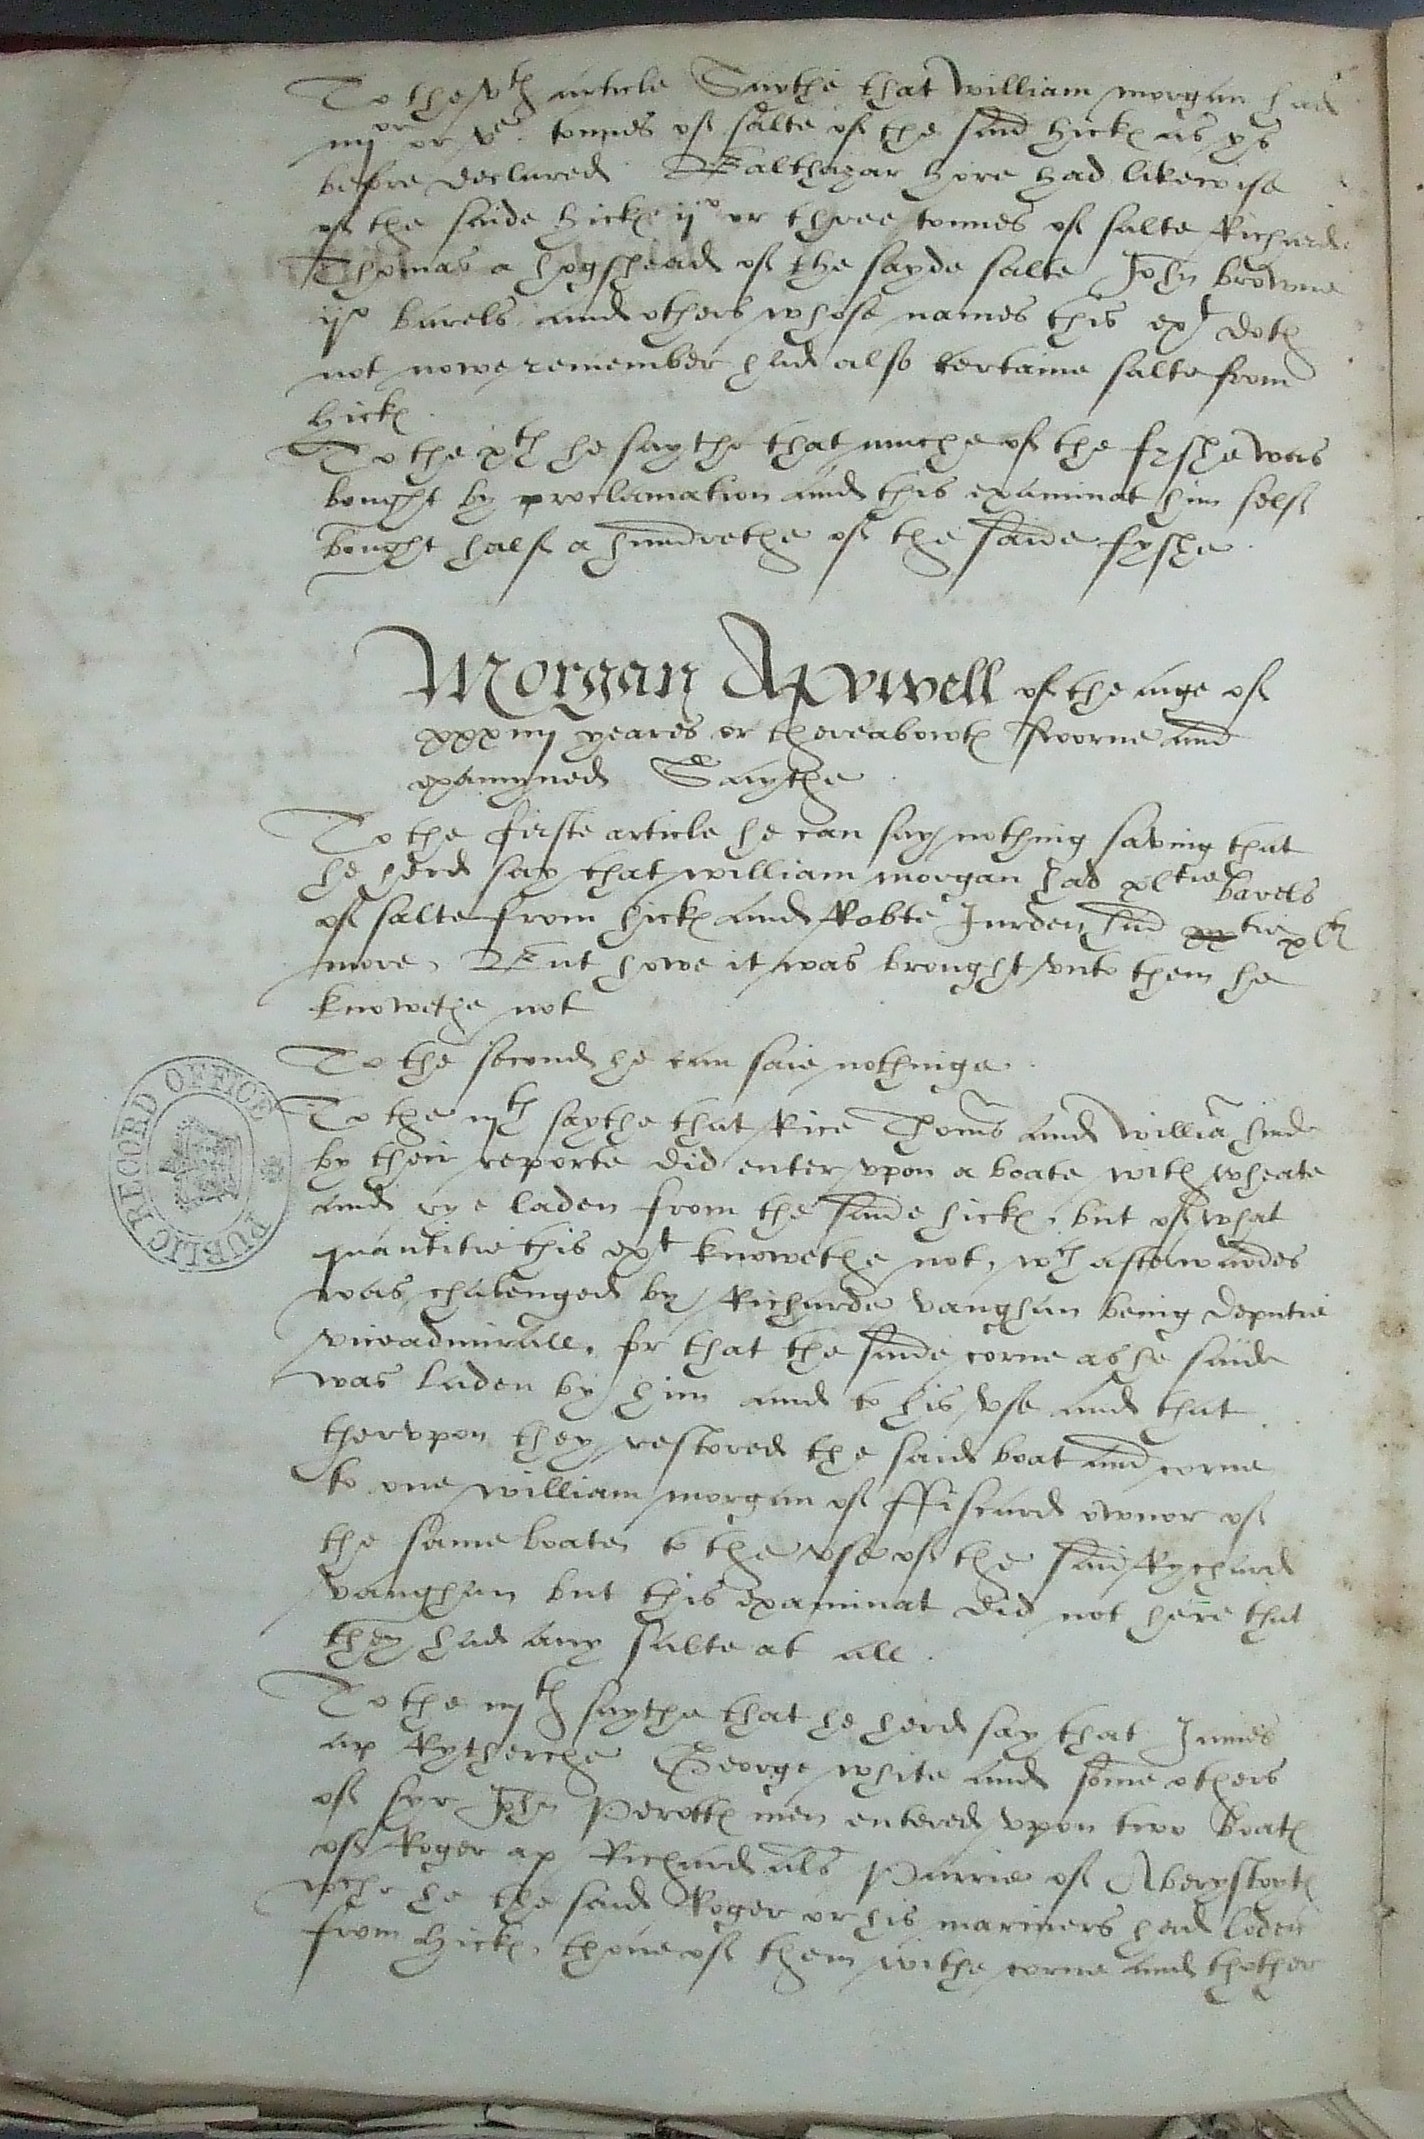 To the vth article Saythe that william morgan had
iiijor or ve tonnes of salte of the said hickes as ys
before declared Balthazar hore had likewise
of the saide hickes ijo or three tonnes of salte Richard
Thomas a hogshead of the sayde salte John browne
ijo barels and others whose names this ext doth
not nowe remember had also certaine salte from
hickes
To the xth he saythe that muche of the fyshe was
bought by proclamation and this examinat him self
bought half a hundrethe of the saide fyshe
Morgan Apowell of the age of
xxxiiij yeares or thereabowtes sworne and
examyned Saythe
To the firste article he can say nothing saving that
he herd say that william morgan had xltie barels
of salte from hickes and Robte Jurden had xxtie xlti
more, But howe it was brought vnto them he
knowethe not
To the second he can saie nothinge
To the iijth saythe that Rice Thoms and willia hinde
by their reporte did enter vpon a boate with wheate
and rye laden from the saide hickes, but of what
quantitie this ext knowethe not, wch afterwardes
was chalenged by Richarde vaughan being deputie
viceadmirall, for that the saide corne as he saide
was laden by him and to his vse and that
thervpon they restored the said boat and corne
to one william morgan of ffiscard ownor of
the same boate to the vse of the said Rychard
vaughan but this examinat did not here that
they had any salte at all
To the iiijth saythe that he herd say that James
ap Rytherche George white and some others
of syr John Perottes men entered vpon two boates
of Roger ap Richard als Parrie of Aberystoyth
wche he the said Roger or his mariners had loden
from hickes, thone of them withe corne and thother
PUBLIC RECORD OFFICE